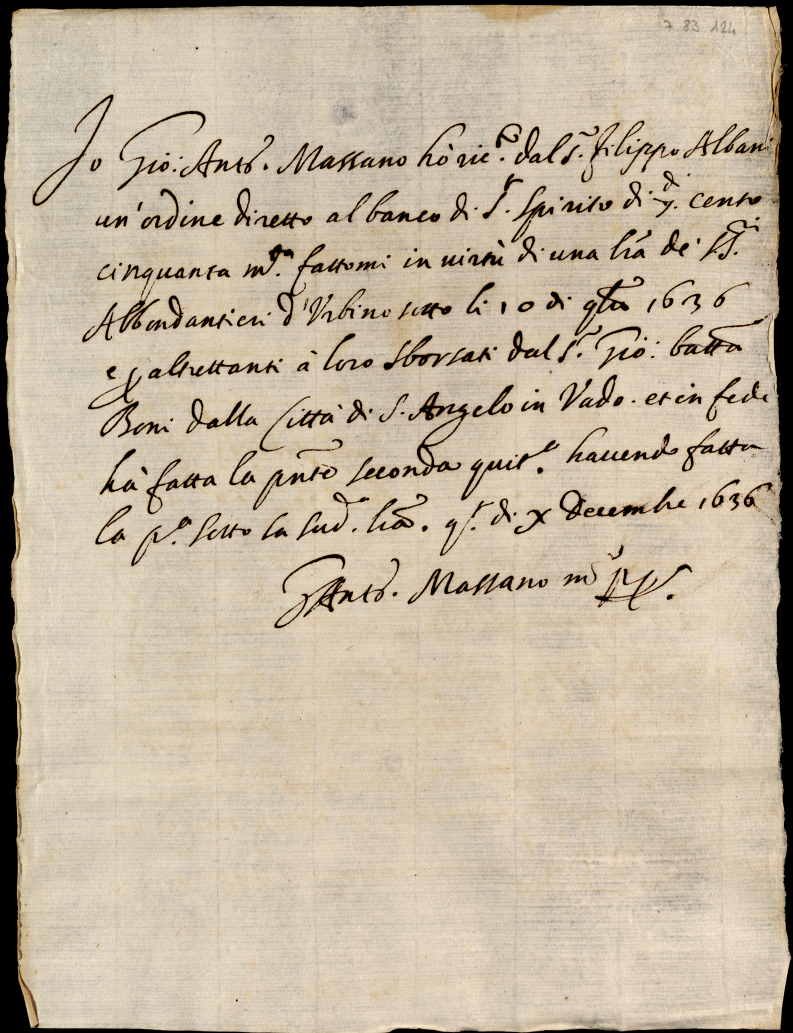 7 83 124
Io Gio: Ant.o Massano hò ric.to dal S.r Filippo Albani
un'ordine diretto al banco di S.to Spirito di di cento
cinquanta m.ta fattomi in virtù di una lrã de' SS.ri
Abbondantieri d'Urbino sotto li 10 di 9bre 1636
e altrettanti à loro sborsati dal S.r Gio: battã
Boni dalla Città di S. Angelo in Vado. et in fede
hà fatta la pñte seconda quit.a havendo fatta
la p.a sotto la sud.a lrã. q.to di X Decembre 1636
Ant.o Massano m